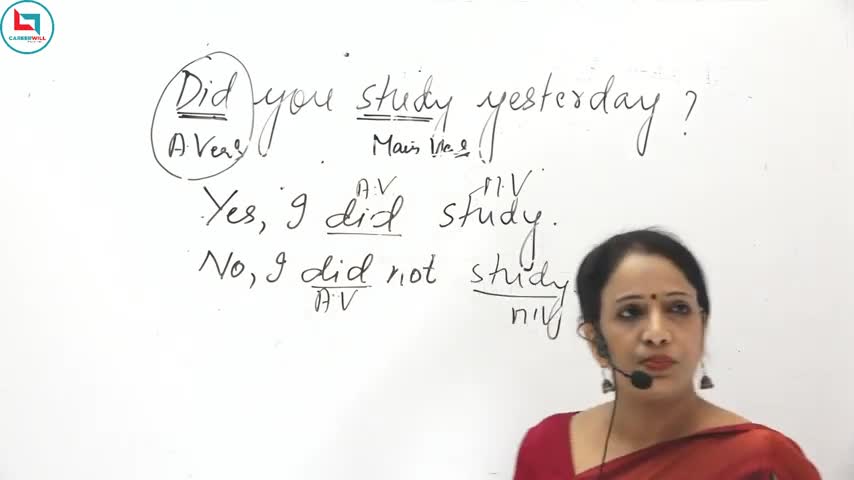 CAREERWILL
Did you study yesterday ?
A.Verb Main Verb
A.V M.V
Yes, I did study.
No, I did not study
A.V M.V